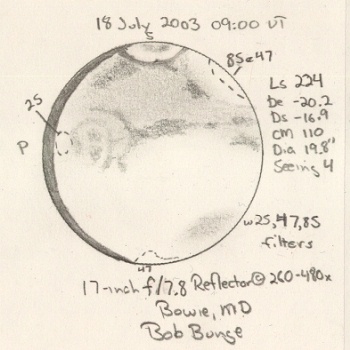 18 July 2003 09:00 UT
S
85&47
25
P
Ls 224
De -20.2
Ds -16.9
CM 110
Dia 19.8"
Seeing 4
w25,47,85
filters
47
17-inch f/7.8 Reflector@ 260-480x
Bowie, MD
Bob Bunge